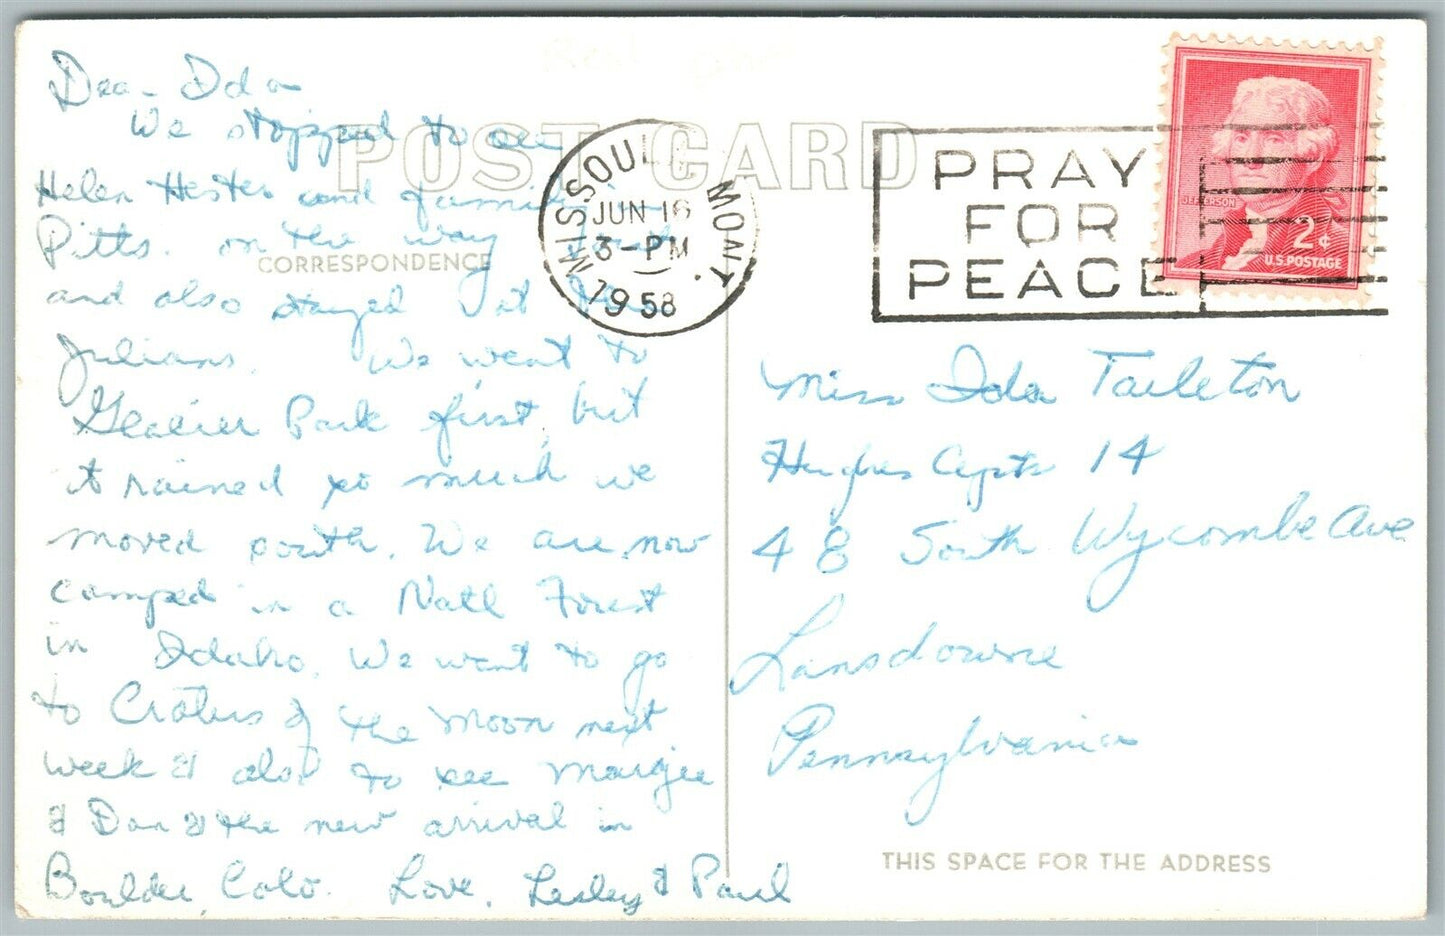 POST CARD
CORRESPONDENCE
Dear Ida
We stopped to see
Helen Hester and family in
Pitts. on the way
and also stayed at the
Julians. We went to
Glacier Park first, but
it rained so much we
moved south. We are now
camped in a Natl Forest
in Idaho. We want to go
to Craters of the Moon next
week & also to see Margie
& Don & the new arrival in
Boulder, Colo. Love, Lesley & Paul
MISSOULA MONT.
JUN 16
3-PM
1958
PRAY
FOR
PEACE
JEFFERSON
2¢
U.S. POSTAGE
Miss Ida Tarleton
Hughes Apts 14
48 South Wycombe Ave
Lansdowne
Pennsylvania
THIS SPACE FOR THE ADDRESS